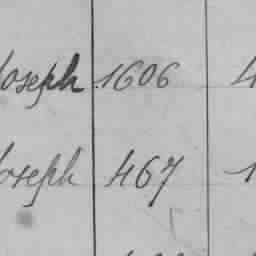 Joseph 1606 4
Joseph 467 1